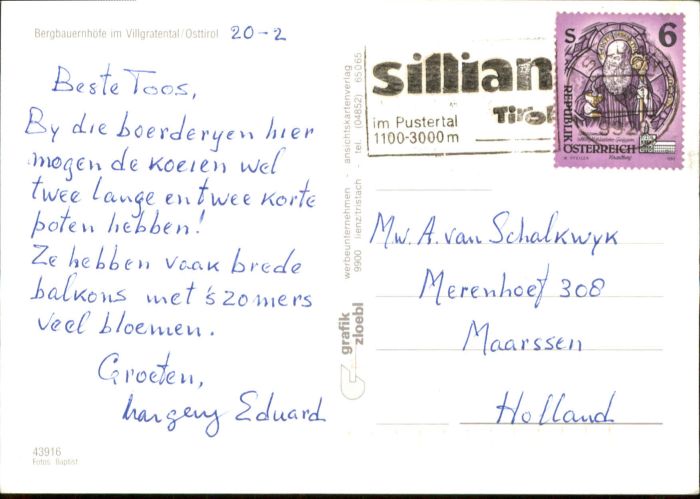 Bergbauernhöfe im Villgratental/Osttirol 20-2
Beste Toos,
By die boerderyen hier
mogen de koeien wel
twee lange en twee korte
poten hebben!
Ze hebben vaak brede
balkons met 's zomers
veel bloemen.
Groeten,
Eduard
43916
Fotos: Baptist
werbeunternehmen - ansichtskartenverlag
9900 lienz/tristach - tel. (04852) 65065
grafik
zloebl
sillian
Tirol
im Pustertal
1100-3000m
S 6
REPUBLIK
ÖSTERREICH
Mw. A. van Schalkwyk
Merenhoef 308
Maarssen
Holland